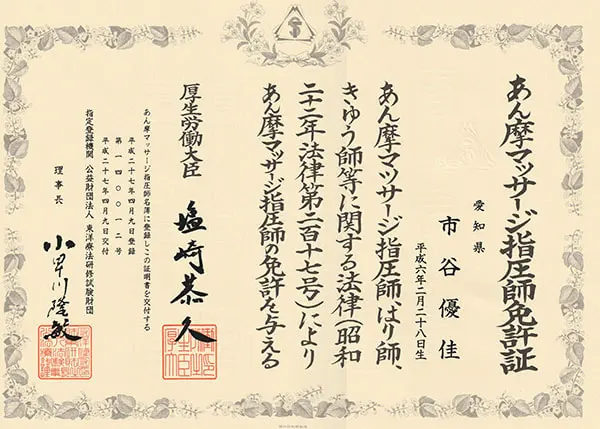 あん摩マッサージ指圧師免許証
愛知県
市谷優佳
平成六年二月二十八日生
あん摩マツサージ指圧師、はり師、
きゆう師等に関する法律(昭和
二十二年法律第二百十七号)により
あん摩マッサージ指圧師の免許を与える
厚生労働大臣 塩崎恭久
あん摩マッサージ指圧師名簿に登録しこの証明書を交付する
平成二十七年四月九日登録
第一四〇〇一二号
平成二十七年四月九日交付
指定登録機関 公益財団法人 東洋療法研修試験財団
理事長 小早川隆敏